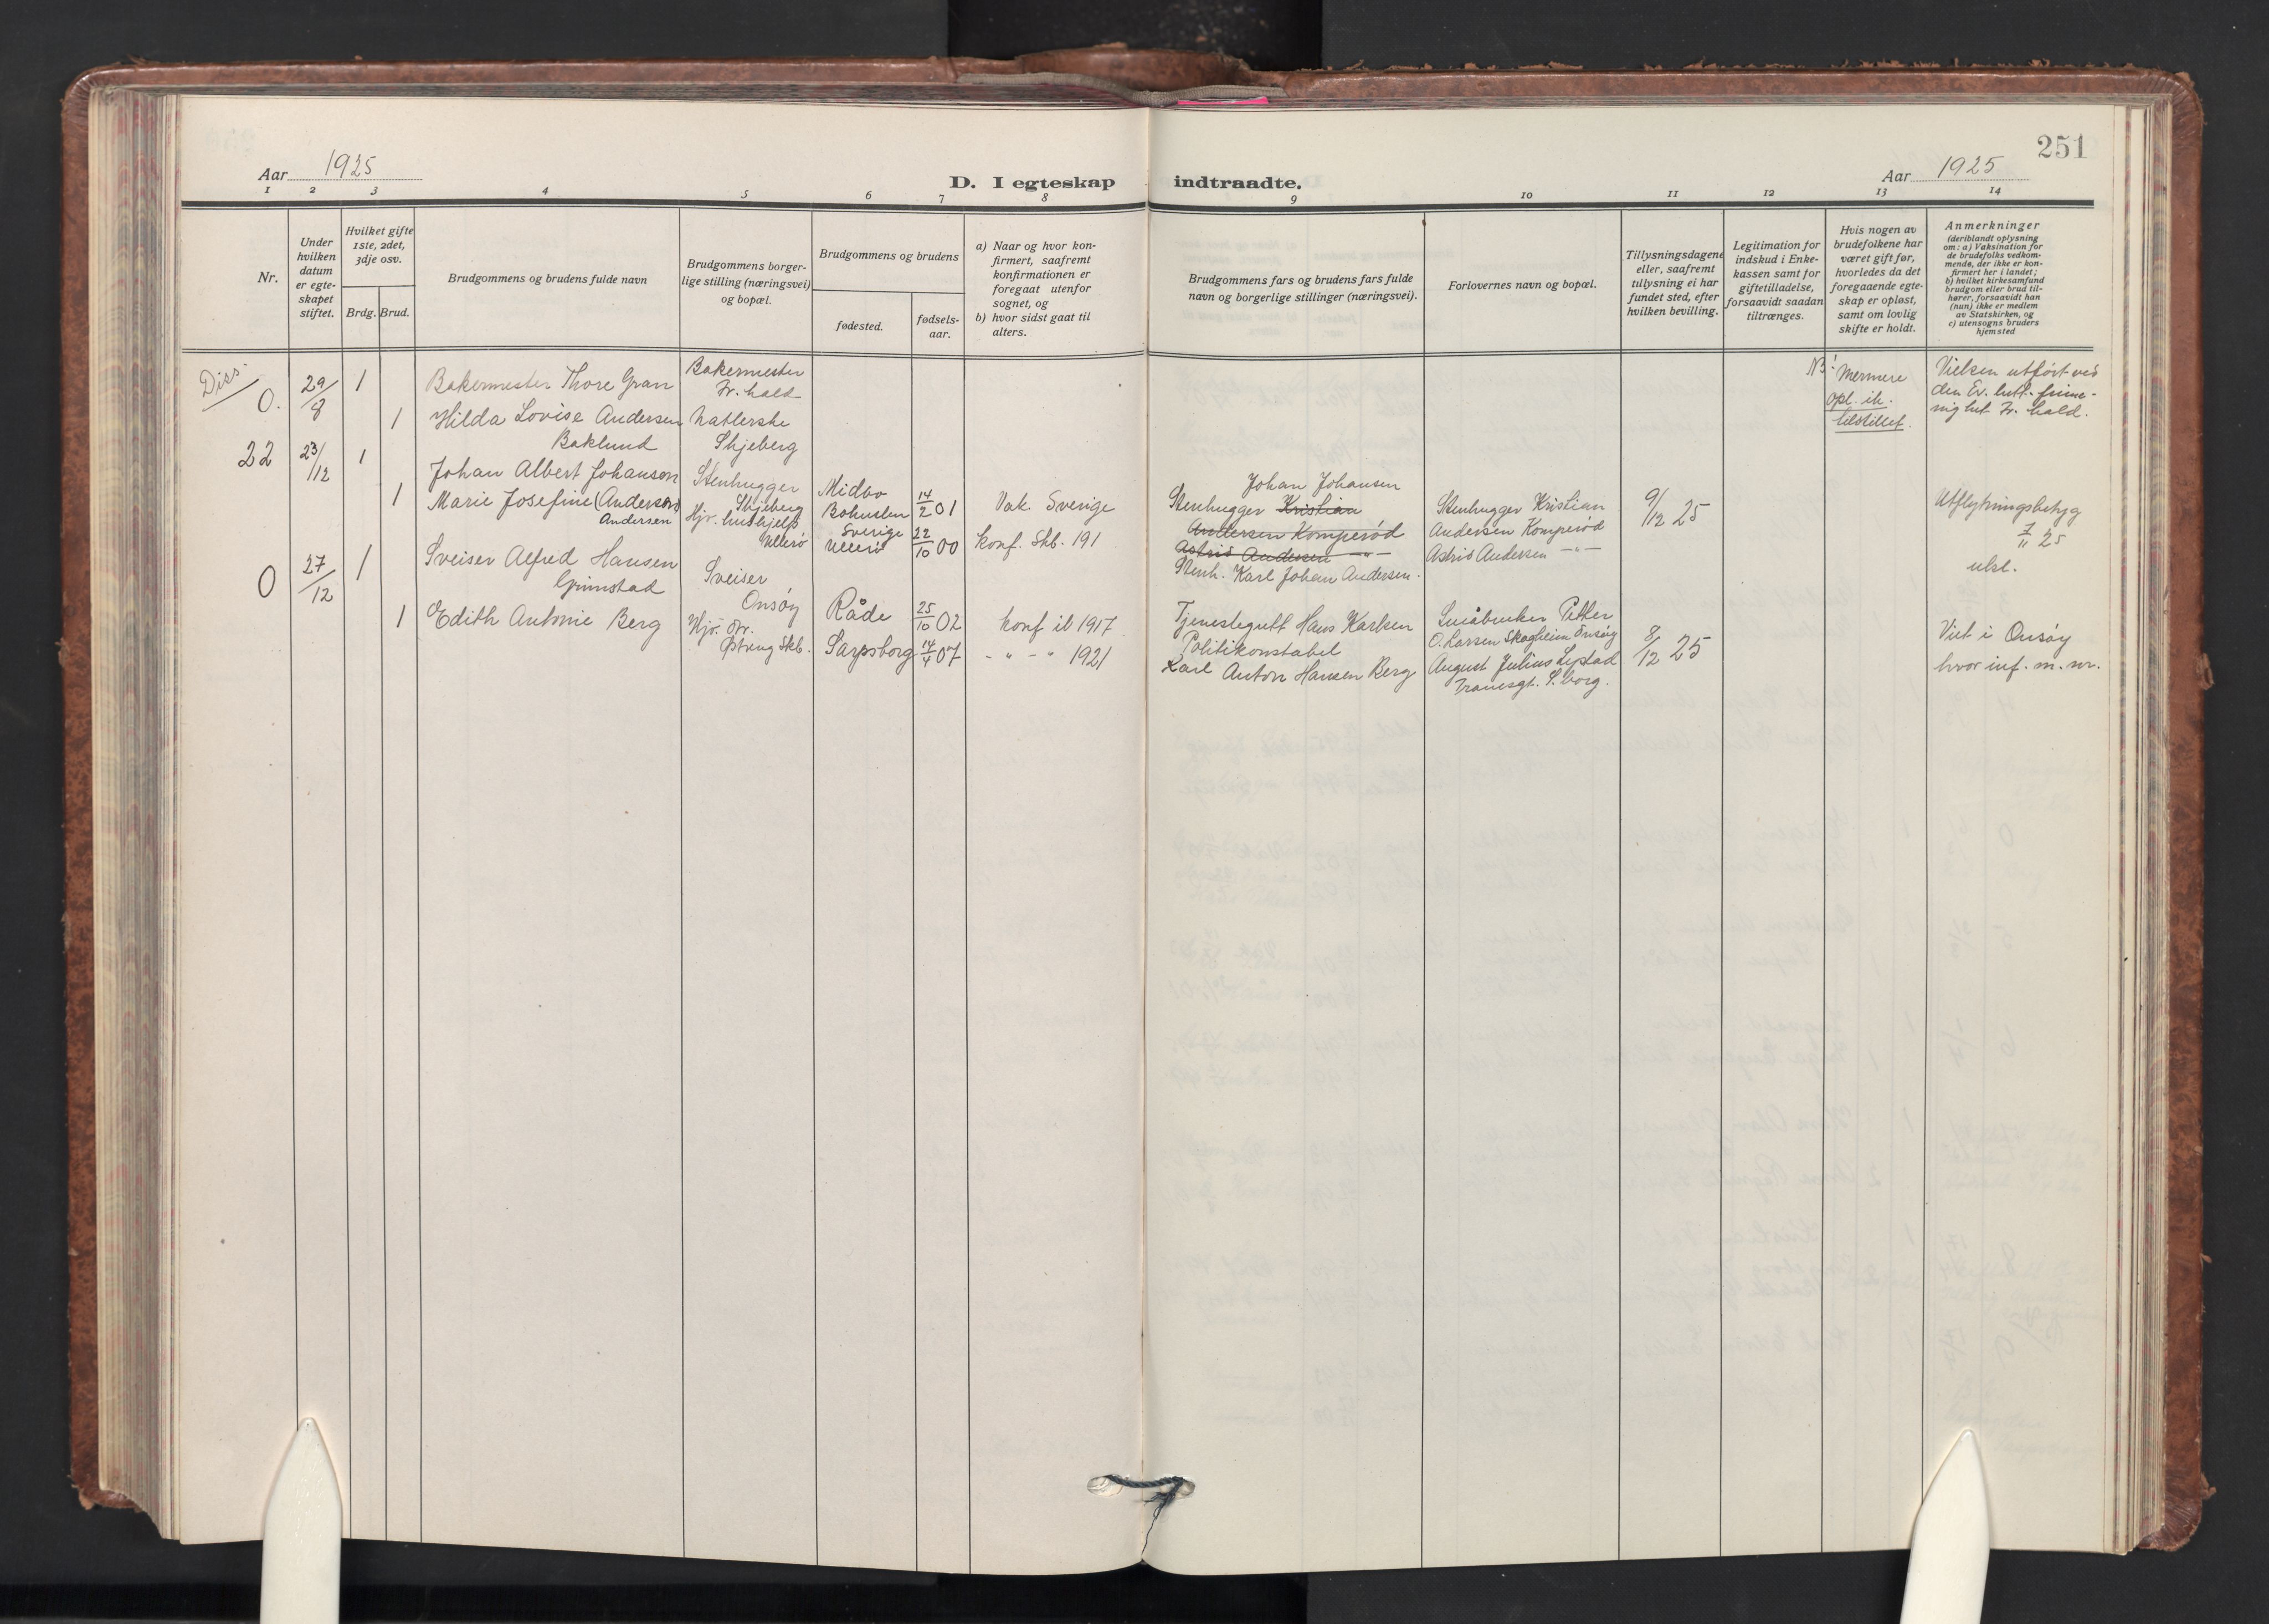 251
Aar 1925
D. I egteskap indtraadte.
Aar 1925
1 2 3 4 5 6 7 8 9 10 11 12 13 14
Nr.
Under
hvilken
datum
er egte-
skapet
stiftet.
Hvilket gifte
1ste, 2det,
3dje osv.
Brdg. Brud.
Brudgommens og brudens fulde navn
Brudgommens borger-
lige stilling (næringsvei)
og bopæl.
Brudgommens og brudens
fødested.
fødsels-
aar.
a) Naar og hvor kon-
firmert, saafremt
konfirmationen er
foregaat utenfor
sognet, og
b) hvor sidst gaat til
alters.
Brudgommens fars og brudens fars fulde
navn og borgerlige stillinger (næringsvei).
Forlovernes navn og bopæl.
Tillysningsdagene
eller, saafremt
tillysning ei har
fundet sted, efter
hvilken bevilling.
Legitimation for
indskud i Enke-
kassen samt for
giftetilladelse,
forsaavidt saadan
tiltrænges.
Hvis nogen av
brudefolkene har
været gift før,
hvorledes da det
foregaaende egte-
skap er opløst,
samt om lovlig
skifte er holdt.
Anmerkninger
(deriblandt oplysning
om: a) Vaksination for
de brudefolks vedkom-
mende, der ikke er kon-
firmert her i landet;
b) hvilket kirkesamfund
brudgom eller brud til-
hører, forsaavidt han
(hun) ikke er medlem
av Statskirken, og
c) utensogns bruders
hjemsted
Diss.
0.
29/8
1
Bakermester Thore Gran
Bakermester
Fr.hald
1
Hilda Lovise Andersen
Baklund
Skjeberg
Nærmere
opl. ik.
tilstillet.
Vielsen utført ved
den Ev. luth. frime-
nighet Fr. hald.
22
23/12
1
Johan Albert Johanson
Stenhugger
Skjeberg
Midbo
Bohuslen
Sverige
14/2 01
Vak. Sverige
1
Marie Josefine (Anderson)
Andersen
Hjv. hushjelp
Ullerø
Ullerø
22/10 00
Konf. Skb. 191
Johan Johansen
Stenhugger Kristian
Andersen Komperød
Astrid Andersen -"-
Stenh. Karl Johan Andersen.
Stenhugger Kristian
Andersen Komperød
Astrid Andersen -"-
9/12 25
Utflytningsbetyg
7/11 25
0
27/12
1
Sveiser Alfred Hansen
Grimstad
Sveiser
Onsøy
Råde
25/10 02
konf ib 1917
1
Edith Antonie Berg
Hjv. dr.
Skb.
Sarpsborg
14/4 07
- " - " 1921
Tjenestegutt Hans Karlsen
Politikonstabel
Karl Anton Hansen Berg
Småbruker Petter
O. Larsen Skogheim Onsøy
August Julius
S.borg.
8/12 25
Viet i Onsøy
hvor inf. m. nr.